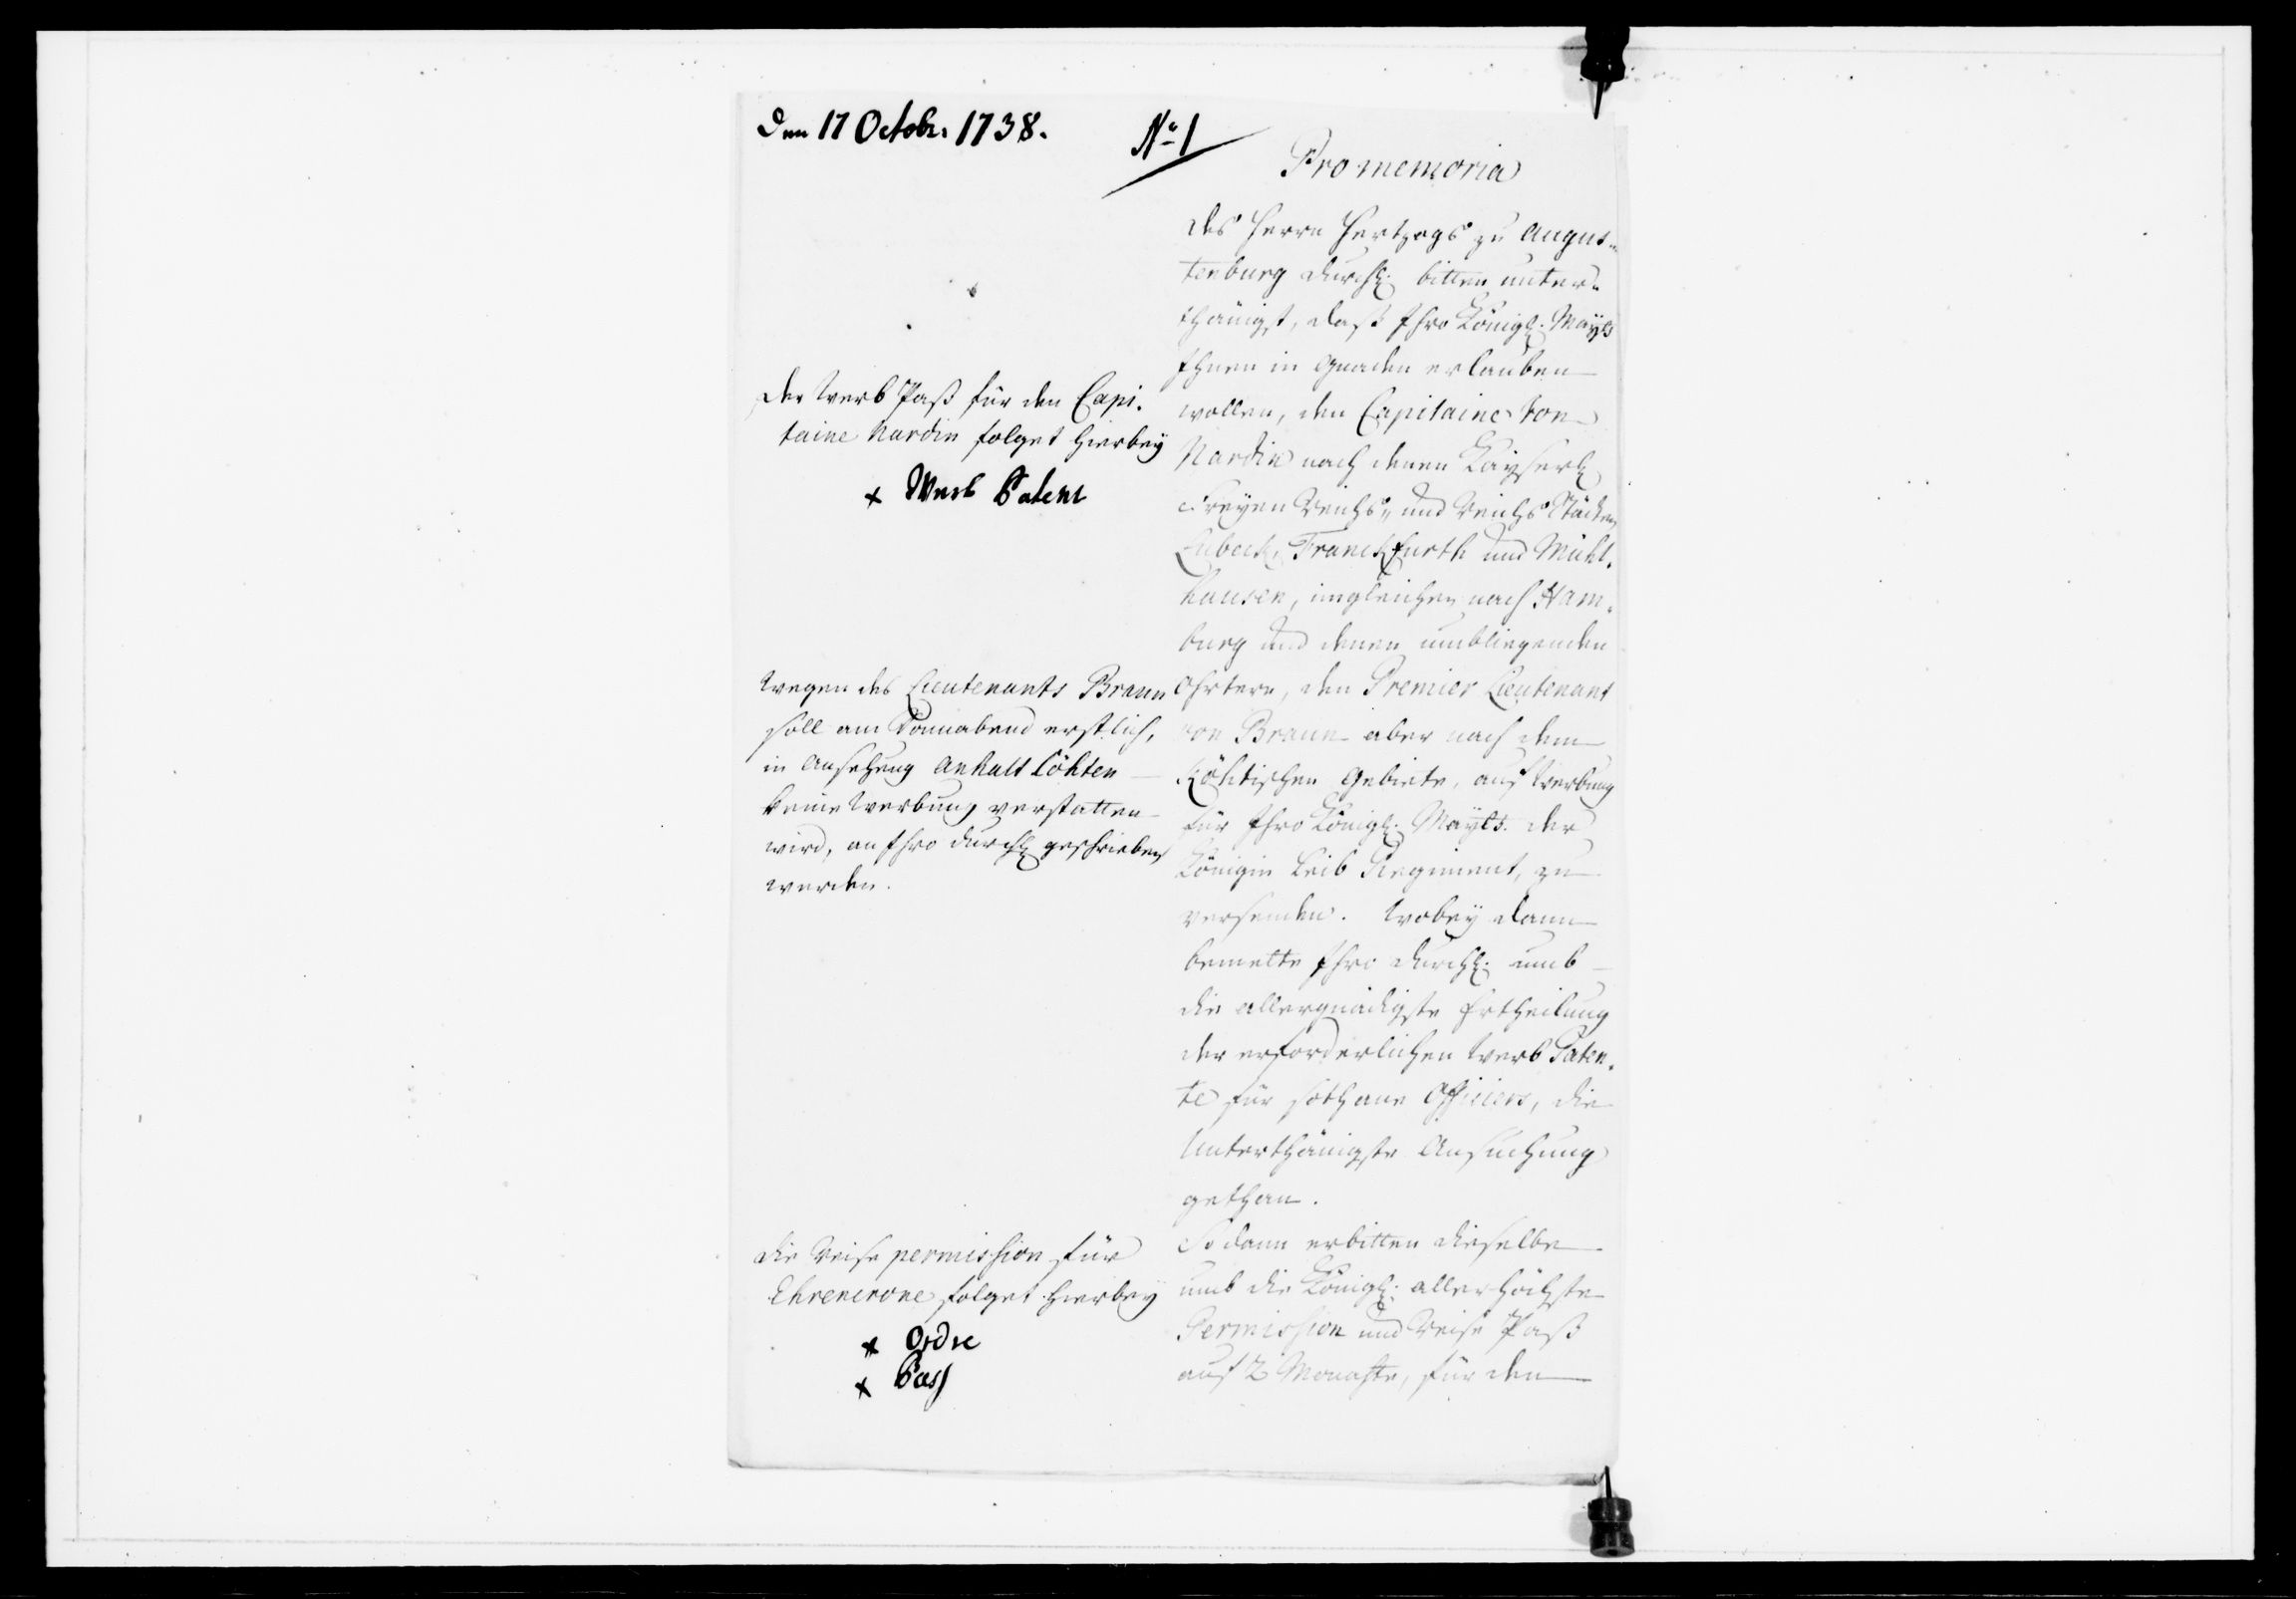 Den 17 Octobr. 1738.
No 1
Pro memoria
Des Herrn Hertzogs zu Augus-
tenburg Durchl. bitten unter-
thänigst, daß Ihro Königl. Mayts
Ihnen in Gnaden erlauben
wollen, den Capitaine von
Nardin nach denen Kayserl
Freyen Reichs, und Reichs Städten
Lubeck, Franckfurth und Mühl.
hausen, imgleichen nach Ham.
burg und denen umbliegenden
Ohrtern, den Premier Lieutenant
von Braun aber nach dem
Köhtischen Gebiete, auf Werbung
für Ihro Königl. Mayts. der
Königin Leib Regiment, zu
versenden. Wobey dann
bemelte Ihro Durchl. umb
die allergnädigste Ertheilung
der erforderlichen Werb Paten.
te für sothane Officiers, die
Unterthänigste Ansuchung
gethan.
So dann erbitten dieselbe
umb die Königl. allerhöchste
Permission und Reise Paß
auf 2 Monahte, für den
Der Werb Paß für den Capi.
taine Nardin folget hierbey
x Werb Patent
Wegen des Lieutenants Braun
soll am Sonnabend erstlich,
in Ansehung Anhalt Cöhten
keine Werbung verstatten
wird, an Ihro Durchl geschrieben
werden.
Die Reise permission für
Ehrencrone folget hierbey
x Ordre
x Pass